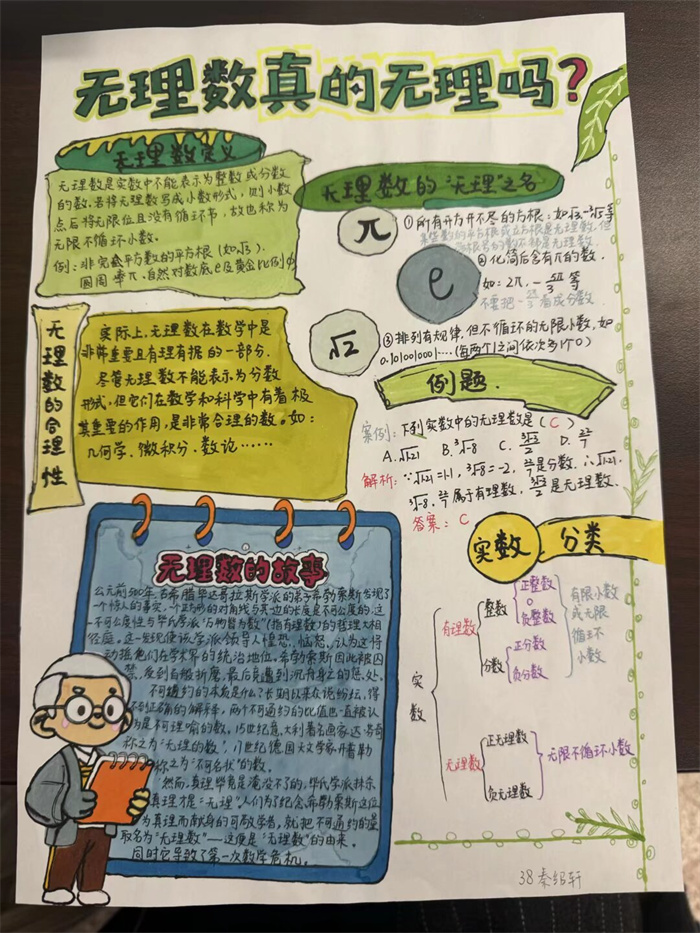 无理数真的无理吗?
无理数定义
无理数是实数中不能表示为整数或分数
的数.若将无理数写成小数形式，则小数
点后将无限位且没有循环节，故也称为
无限不循环小数。
例：非完全平方数的平方根(如√3).
圆周率π、自然对数底e及黄金比例φ
无理数的合理性
实际上，无理数在数学中是
非常重要且有理有据的一部分.
尽管无理数不能表示为分数
形式，但它们在数学和科学中有着极
其重要的作用，是非常合理的数。如：
几何学、微积分、数论……
无理数的"无理"之名
π
①所有开方开不尽的方根：如√3,-³√5等
某些数的平方根或立方根是无理数，但
带根号的数不都是无理数.
e
②化简后含有π的数.
如：2π，-5π/3等
不要把-5π/3看成分数
√2
③排列有规律，但不循环的无限小数，如
0.1010010001…(每两个1之间依次多1个0)
例题.
案例：下列实数中的无理数是(C)
A.√1.21 B.³√-8 C.³√3/2 D.22/7
解析：∵√1.21=1.1，³√-8=-2，22/7是分数.∴√1.21，
³√-8，22/7属有理数，³√3/2是无理数.
答案：C
实数 分类
实数
有理数
整数
正整数
0
负整数
分数
正分数
负分数
有限小数
或无限
循环
小数
无理数
正无理数
负无理数
无限不循环小数
无理数的故事
公元前500年，古希腊毕达哥拉斯学派的弟子希勃索斯发现了
一个惊人的事实，一个正方形的对角线与其边的长度是不可公度的.这
一不可公度性与毕氏学派"万物皆为数"(指有理数)的哲理大相
径庭。这一发现使该学派领导人惶恐、恼怒，认为这将
动摇他们在学术界的统治地位。希勃索斯因此被囚
禁，受到百般折磨，最后竟遭到沉舟身亡的惩处。
不可通约的本质是什么?长期以来众说纷纭，得
不到正确的解释，两个不可通约的比值也一直被认
为是不可理喻的数。15世纪意大利著名画家达·芬奇
称之为"无理的数"，17世纪德国天文学家开普勒
称之为"不可名状"的数。
然而，真理毕竟是淹没不了的，毕氏学派抹杀
真理才是"无理".人们为了纪念希勃索斯这位
为真理而献身的可敬学者，就把不可通约的量
取名为"无理数"——这便是"无理数"的由来.
同时它导致了第一次数学危机。
38 秦绍轩